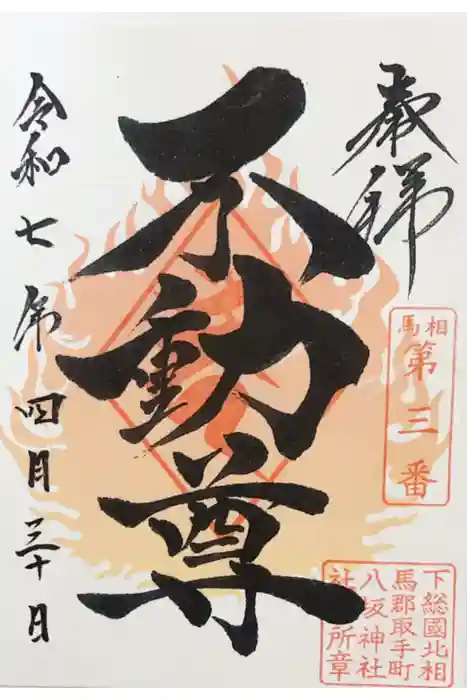 奉拝
相馬
第三番
下総國北相
馬郡取手町
八坂神社
社務所章
不動尊
令和七年四月三十日